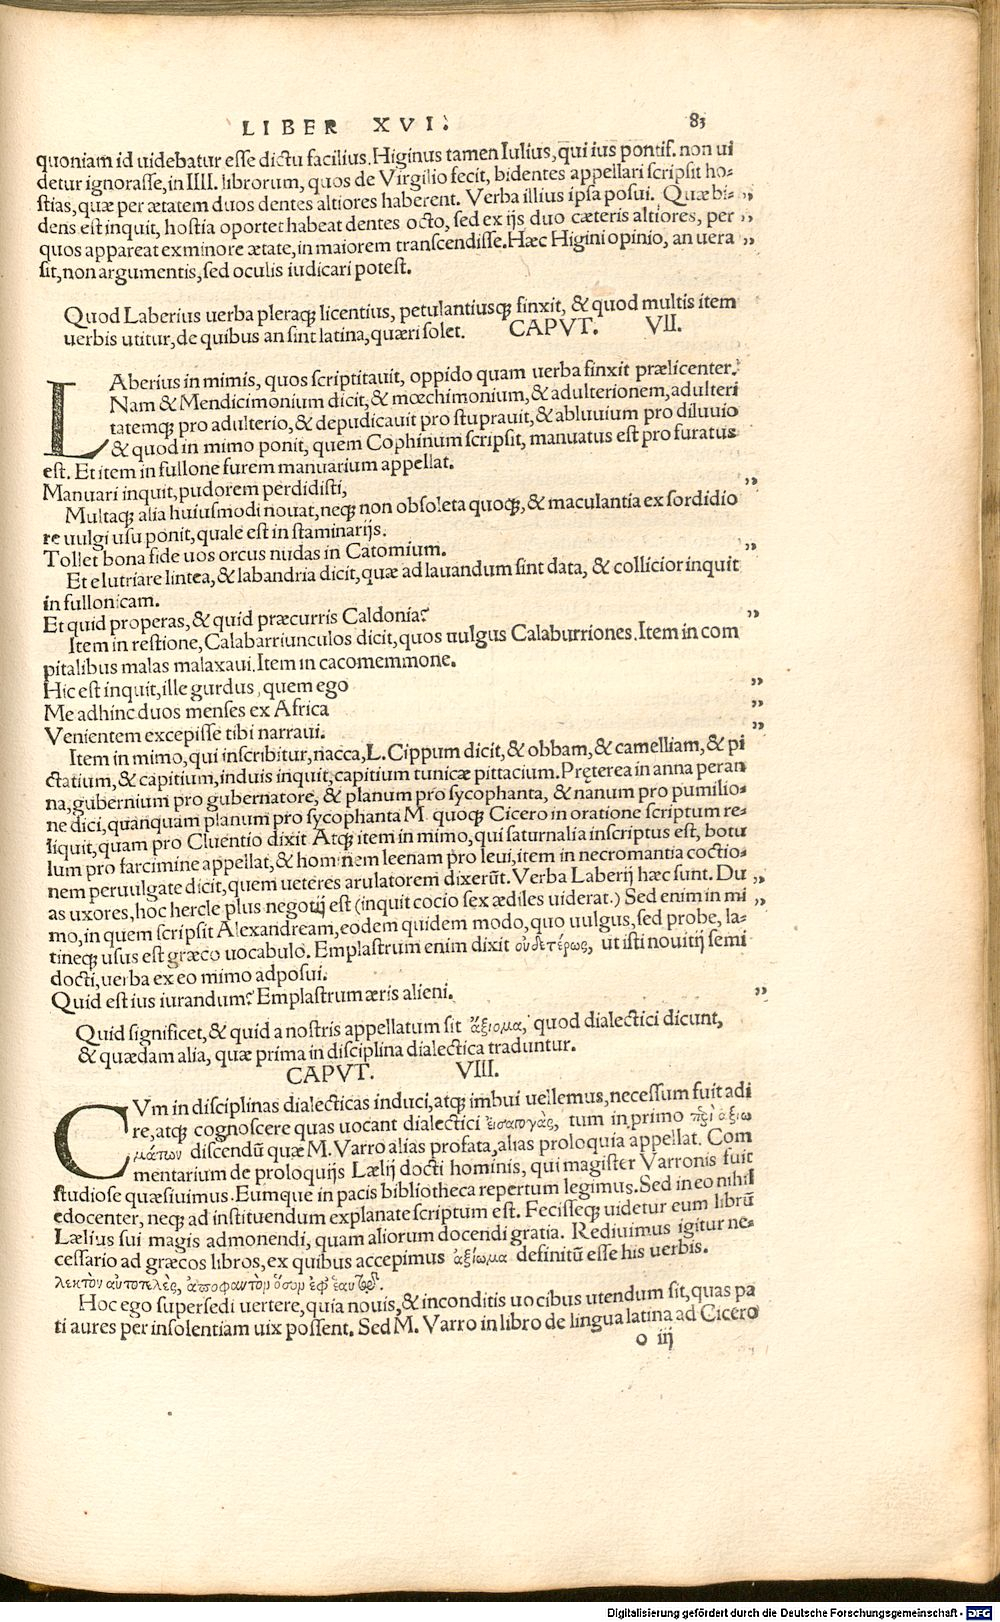 LIBER XVI.
83
quoniam id uidebatur esse dictu facilius. Higinus tamen Iulius, qui ius pontif. non ui
detur ignorasse, in IIII. librorum, quos de Virgilio fecit, bidentes appellari scripsit ho-
stias, quæ per ætatem duos dentes altiores haberent. Verba illius ipsa posui. Quæ bi- „
dens est inquit, hostia oportet habeat dentes octo, sed ex ijs duo cæteris altiores, per „
quos appareat ex minore ætate, in maiorem transcendisse. Hæc Higini opinio, an uera „
sit, non argumentis, sed oculis iudicari potest.
Quod Laberius uerba pleraqꝫ licentius, petulantiusqꝫ finxit, & quod multis item
uerbis utitur, de quibus an sint latina, quæri solet. CAPVT. VII.
LAberius in mimis, quos scriptitauit, oppido quam uerba finxit prælicenter.
Nam & Mendicimonium dicit, & mœchimonium, & adulterionem, adulteri
tatemqꝫ pro adulterio, & depudicauit pro stuprauit, & abluuium pro diluuio
& quod in mimo ponit, quem Cophinum scripsit, manuatus est pro furatus
est. Et item in fullone furem manuarium appellat.
Manuari inquit, pudorem perdidisti, „
Multaqꝫ alia huiusmodi nouat, neqꝫ non obsoleta quoqꝫ, & maculantia ex sordidio
re uulgi usu ponit, quale est in staminarijs.
Tollet bona fide uos orcus nudas in Catomium. „
Et elutriare lintea, & labandria dicit, quæ ad lauandum sint data, & collicior inquit
in fullonicam.
Et quid properas, & quid præcurris Caldonia? „
Item in restione, Calabarriunculos dicit, quos uulgus Calaburriones. Item in com
pitalibus malas malaxaui. Item in cacomemmone.
Hic est inquit, ille gurdus, quem ego „
Me adhinc duos menses ex Africa „
Venientem excepisse tibi narraui. „
Item in mimo, qui inscribitur, nacca, L. Cippum dicit, & obbam, & camelliam, & pi
ctatium, & capitium, induis inquit, capitium tunicæ pittacium. Pręterea in anna peran
na, gubernium pro gubernatore, & planum pro sycophanta, & nanum pro pumilio-
ne dici, quanquam planum pro sycophanta M. quoqꝫ Cicero in oratione scriptum re-
liquit, quam pro Cluentio dixit Atqꝫ item in mimo, qui saturnalia inscriptus est, botu
lum pro farcimine appellat, & hominem leenam pro leui, item in necromantia coctio-
nem peruulgate dicit, quem ueteres arulatorem dixerūt. Verba Laberij hæc sunt. Du „
as uxores, hoc hercle plus negotij est (inquit cocio sex ædiles uiderat.) Sed enim in mi „
mo, in quem scripsit Alexandream, eodem quidem modo, quo uulgus, sed probe, la-
tineqꝫ usus est græco uocabulo. Emplastrum enim dixit οὐδετέρως, ut isti nouitij semi
docti, uerba ex eo mimo adposui.
Quid est ius iurandum? Emplastrum æris alieni. „
Quid significet, & quid a nostris appellatum sit ἄξιομα, quod dialectici dicunt,
& quædam alia, quæ prima in disciplina dialectica traduntur.
CAPVT. VIII.
CVm in disciplinas dialecticas induci, atqꝫ imbui uellemus, necessum fuit adi
re, atqꝫ cognoscere quas uocant dialectici ἐισαγογὰς, tum in primo πεὶ ἀξιω
μάτων discendū quæ M. Varro alias profata, alias proloquia appellat. Com
mentarium de proloquijs Lælij docti hominis, qui magister Varronis fuit
studiose quæsiuimus. Eumque in pacis bibliotheca repertum legimus. Sed in eo nihil
edocenter, neqꝫ ad instituendum explanate scriptum est. Fecisseqꝫ uidetur eum librū
Lælius sui magis admonendi, quam aliorum docendi gratia. Rediuimus igitur ne-
cessario ad græcos libros, ex quibus accepimus ἀξίωμα definitū esse his uerbis.
λεκτὸν αὐτοτελὲς, ἀποφαντὸν ὅσον ἐφ' ἑαυτῷ.
Hoc ego supersedi uertere, quia nouis, & inconditis uocibus utendum sit, quas pa
ti aures per insolentiam uix possent. Sed M. Varro in libro de lingua latina ad Cicero
o iij
Digitalisierung gefördert durch die Deutsche Forschungsgemeinschaft - DFG